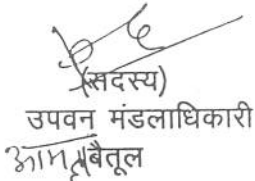 (सदस्य)
उपवन मंडलाधिकारी
आमला बैतूल